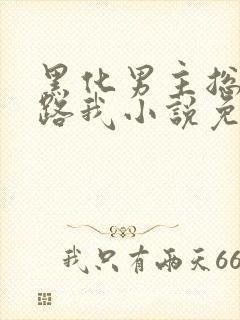 黑化男主撩
路我小說免
我只有兩天66